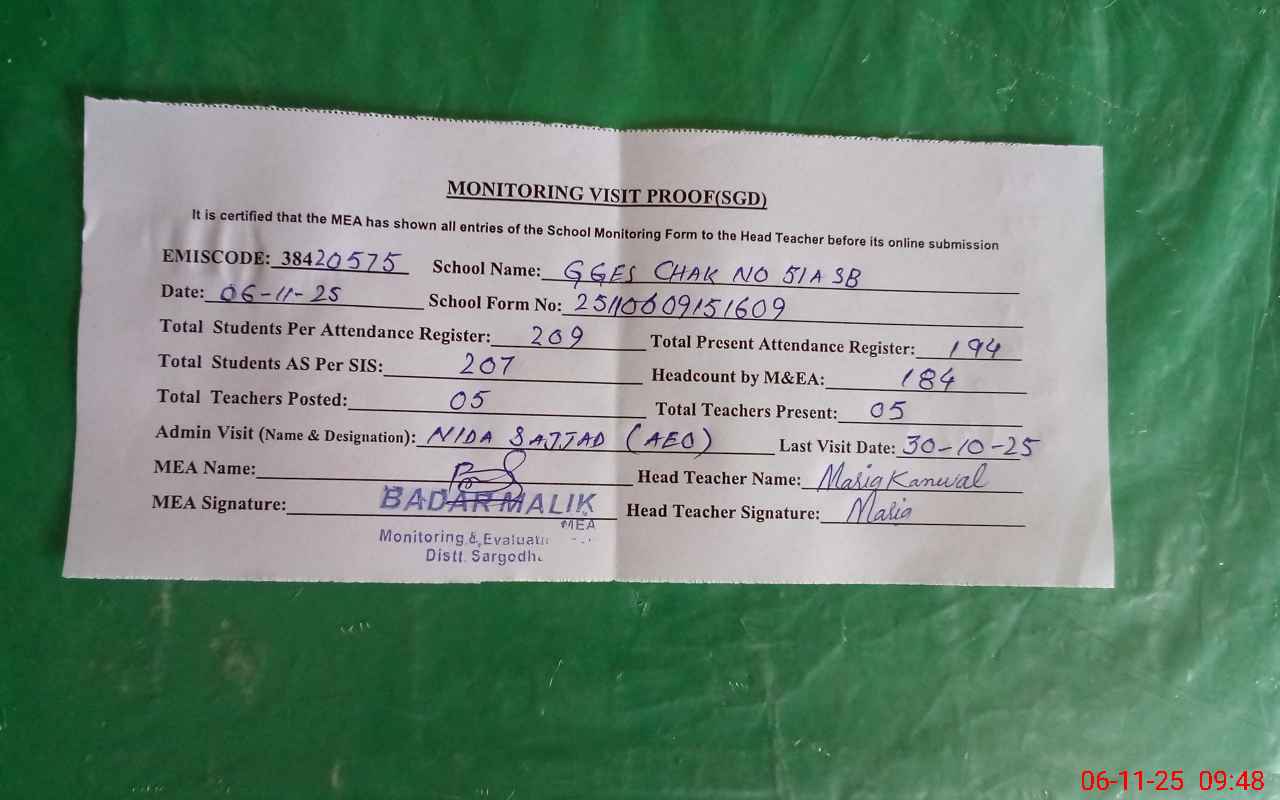 MONITORING VISIT PROOF(SGD)
It is certified that the MEA has shown all entries of the School Monitoring Form to the Head Teacher before its online submission
EMISCODE: 38420575 School Name: GGES CHAK NO 51A SB
Date: 06-11-25 School Form No: 25110609151609
Total Students Per Attendance Register: 209 Total Present Attendance Register: 194
Total Students AS Per SIS: 207 Headcount by M&EA: 184
Total Teachers Posted: 05 Total Teachers Present: 05
Admin Visit (Name & Designation): NIDA SAJJAD (AEO) Last Visit Date: 30-10-25
MEA Name: Head Teacher Name: Maria Kanwal
MEA Signature: BADAR MALIK Head Teacher Signature: Maria
MEA
Monitoring & Evaluati
Distt. Sargodh
06-11-25 09:48